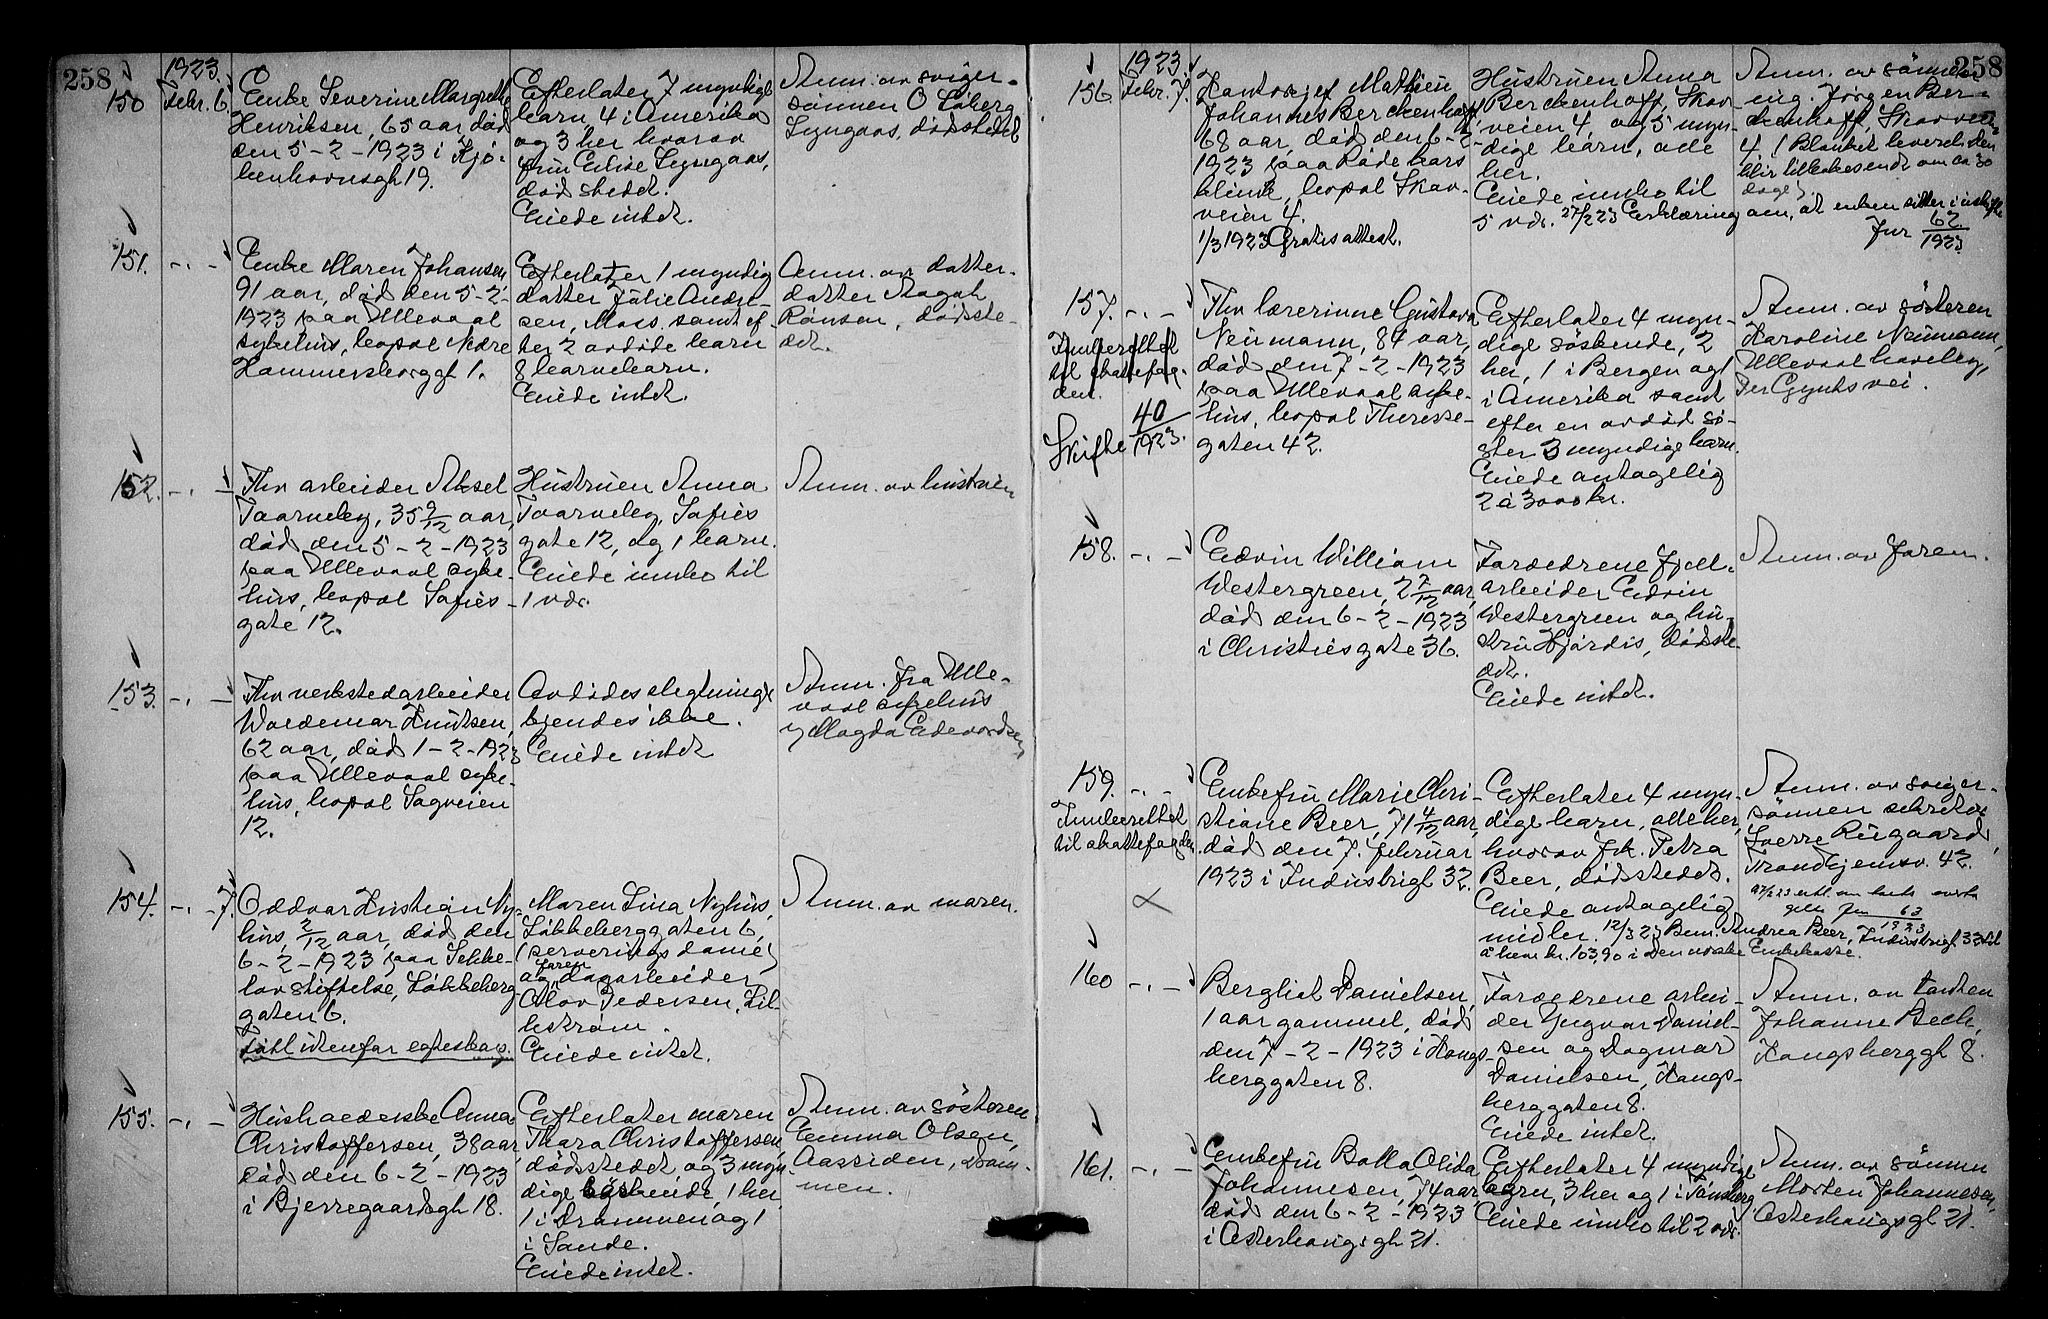 258
1923.
150
Febr. 6.
Enke Severine Margrethe
Henriksen, 65 aar, død
den 5-2-1923 i Kjø-
benhavnsgt 19.
Efterlater 7 myndige
barn, 4 i Amerika
og 3 her hvorav
fru Elise Lyngaas,
dødsstedet.
Eiede intet.
Anm. av sviger-
sønnen O Løberg
Lyngaas, dødsstedet
151. -.-
Enke Maren Johansen
91 aar, død den 5-2-
1923 paa Ullevaal
sykehus, bopal Nedre
Hammersborggt 1.
Efterlater 1 myndig
datter Julie Andre-
sen, Moss. samt ef-
ter 2 avdøde barn
8 barnebarn.
Eiede intet.
Anm. av datter-
datter Aagot
Hansen, dødste-
det.
152. -.-
Fhv arbeider Aksel
Taarneby, 35 9/12 aar,
død den 5-2-1923
paa Ullevaal syke-
hus, bopal Sofies
gate 12.
Hustruen Anna
Taarneby, Sofies
gate 12, og 1 barn.
Eiede innbo til
1 vdr.
Anm. av hustruen
153. -.-
Fhv verkstedarbeider
Waldemar Knutsen,
62 aar, død 1-2-1923
paa Ullevaal syke-
hus, bopal Sagveien
12.
Avdødes slegtninge
kjendes ikke.
Eiede intet
Anm. fra Ulle-
vaal sykehus
v Magda Edvardsen,
154. -.- 7.
Oddvar Kristian Ny-
hus, 2/12 aar, død den
6-2-1923 paa
stiftelse, Løkkeberg
gaten 6.
Født utenfor egteskap.
Moren Lina Nyhus,
Løkkeberggaten 6,
(serveringsdame)
og faren dagarbeider
Olav Pedersen, Lil-
lestrøm.
Eiede intet.
Anm. av moren.
155. -.-
Husholderske Anna
Christoffersen, 38 aar,
død den 6-2-1923
i Bjerregaardsgt 18.
Efterlater moren
Thora Christoffersen,
dødsstedet og 3 myn-
dige søskende, 1 her,
1 i Drammen og 1
i Sande.
Eiede intet.
Anm. av søsteren
Emma Olsen,
Aassiden, Dram-
men.
258
1923
156.
Febr. 7.
Kontorsjef Mathieu
Johannes Berckenhoff,
68 aar, død den 6-2-
1923 paa Røde kors
klinik, bopal Skov-
veien 4.
1/3 1923 Gratis attest.
Hustruen Anna
Berckenhoff, Skov-
veien 4, og 5 myn-
dige barn, alle
her.
Eiede innbo til
5 vdr. 27/2 23 Erklæring om, at enken sitter i uskifte
Jnr 62/1923
Anm. av sønnen
ing. Jørgen Ber-
ckenhoff, Skovveien
4 (Blanket leveret den
blir tilbakesendt om ca 30
dage).
157. -.-
Innberettet
til skattefog-
den.
Skifte 40/1923.
Fhv lærerinne Gustava
Neumann, 84 aar,
død den 7-2-1923
paa Ullevaal syke-
hus, bopal Therese-
gaten 42.
Efterlater 4 myn-
dige søskende, 2
her, 1 i Bergen og 1
i Amerika samt
efter en avdød sø-
ster 3 myndige barn.
Eiede antagelig
2 à 3000 kr.
Anm. av søsteren
Karoline Neumann,
Ullevaal haveby,
Per Gynts vei.
158. -.-
Edvin William
Westergreen, 2 7/12 aar,
død den 6-2-1923
i Christies gate 36.
Forældrene fjell-
arbeider Edvin
Westergreen og hu-
stru Hjørdis, dødste-
det.
Eiede intet.
Anm. av faren.
159. -.-
Innberettet
til skattefogden
Enkefru Marie Chri-
stiane Beer, 71 4/12 aar,
død den 7. februar
1923 i Industrigt 32.
Efterlater 4 myn-
dige barn, alle her,
hvorav frk. Petra
Beer, dødsstedet.
Eiede antagelig
midler. 12/3 23 Bem. Andrea Beer, Industrigt 32 til
å heve kr. 103,90 i Den norske Enkekasse.
Anm. av sviger-
sønnen sekretær
Sverre Riigaard,
Trondhjemsv. 42.
Jnr 63/1923
160 -.-
Bergliot Danielsen,
1 aar gammel, død
den 7-2-1923 i Kongs-
berggaten 8.
Forældrene arbei-
der Yngvar Daniel-
sen og Dagmar
Danielsen, Kongs-
berggaten 8.
Eiede intet.
Anm. av tanten
Johanne Bech,
Kongsberggt 8.
161. -.-
Enkefru Bolla Olida
Johannesen, 74 aar
død den 6-2-1923
i Østerhausgt 21.
Efterlater 4 myndige
barn, 3 her og 1 i Tønsberg.
Eiede innbo til 2 vdr.
Anm. av sønnen
Morten Johannesen,
Østerhausgt 21.